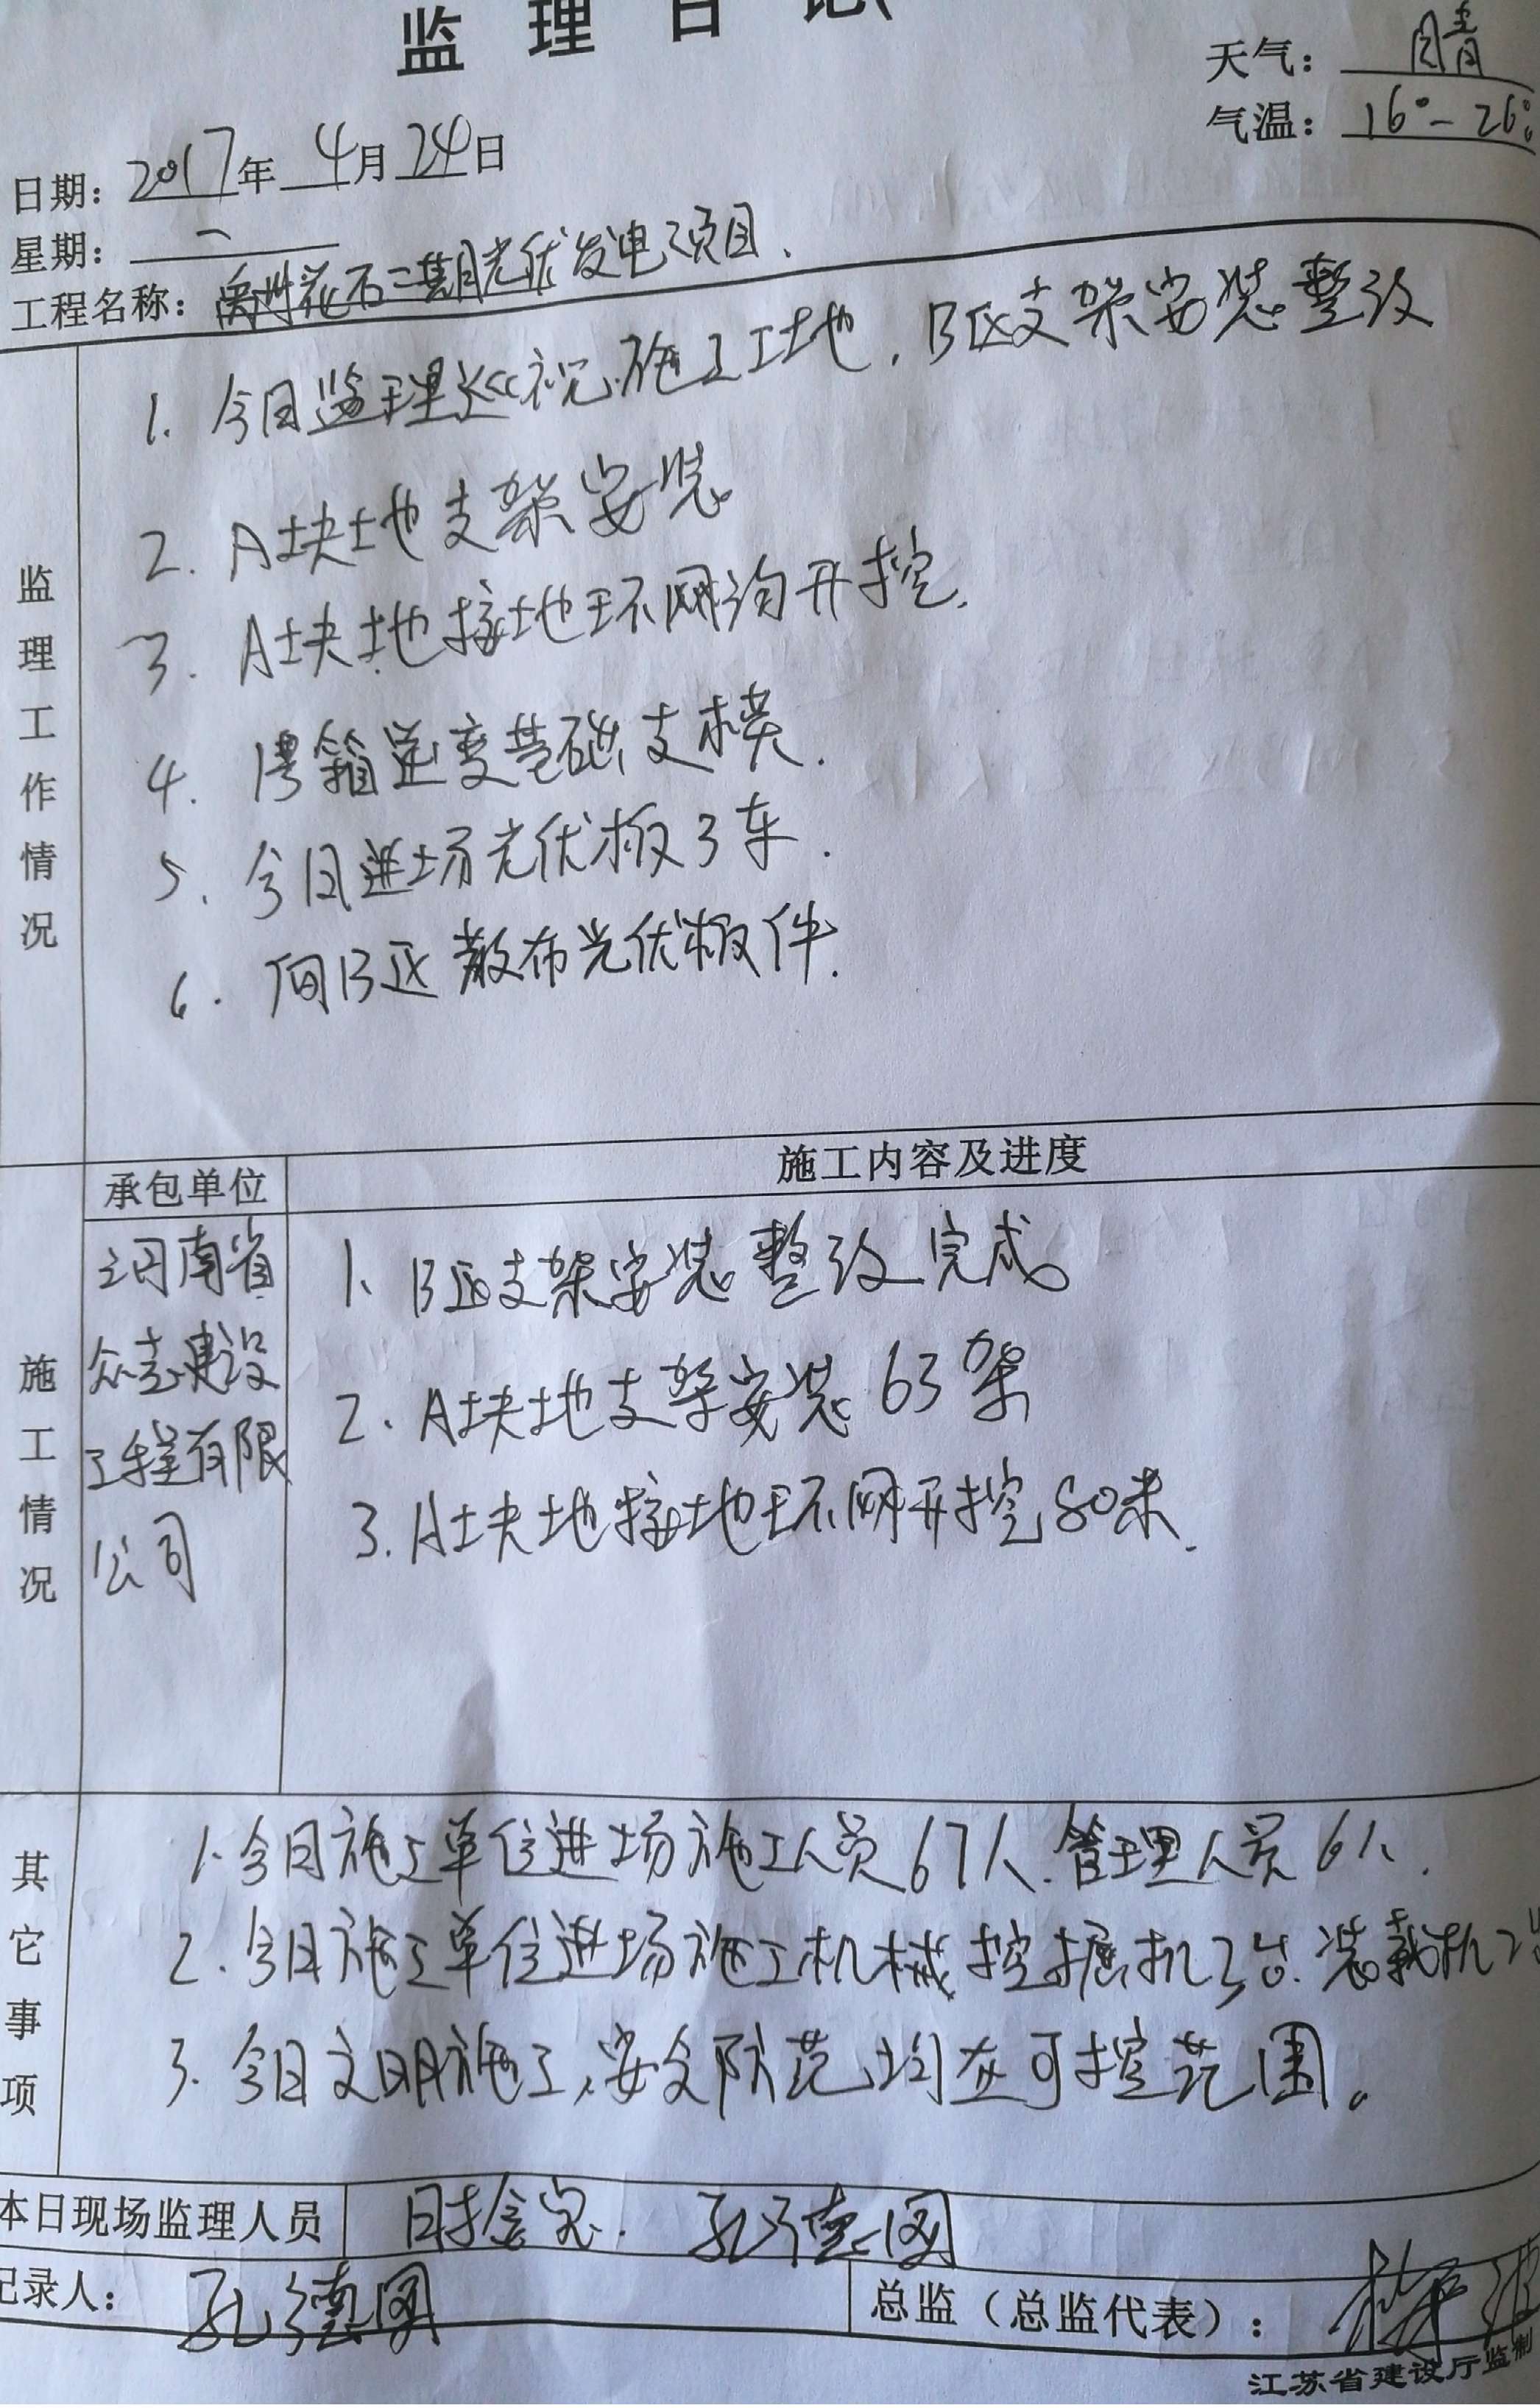 监理日记
天气：晴
气温：16°-26°
日期：2017年4月24日
星期：一
工程名称：禹州花石二期光伏发电项目.
监理工作情况
1. 今日监理巡视施工工地，B区支架安装整改
2. A块地支架安装
3. A块地接地环网沟开挖.
4. 箱逆变基础支模.
5. 今日进场光伏板3车.
6. 向B区散布光伏板件.
承包单位
施工内容及进度
施工情况
河南省
众志建设
工程有限
公司
1、B区支架安装整改完成。
2. A块地支架安装63架
3. A块地接地环网开挖80米.
其它事项
1.今日施工单位进场施工人员67人.管理人员6人.
2.今日施工单位进场施工机械挖掘机3台.装载机2
3. 今日文明施工,安全防范均在可控范围。
本日现场监理人员
孔德图
记录人：孔德图
总监（总监代表）：
江苏省建设厅监制